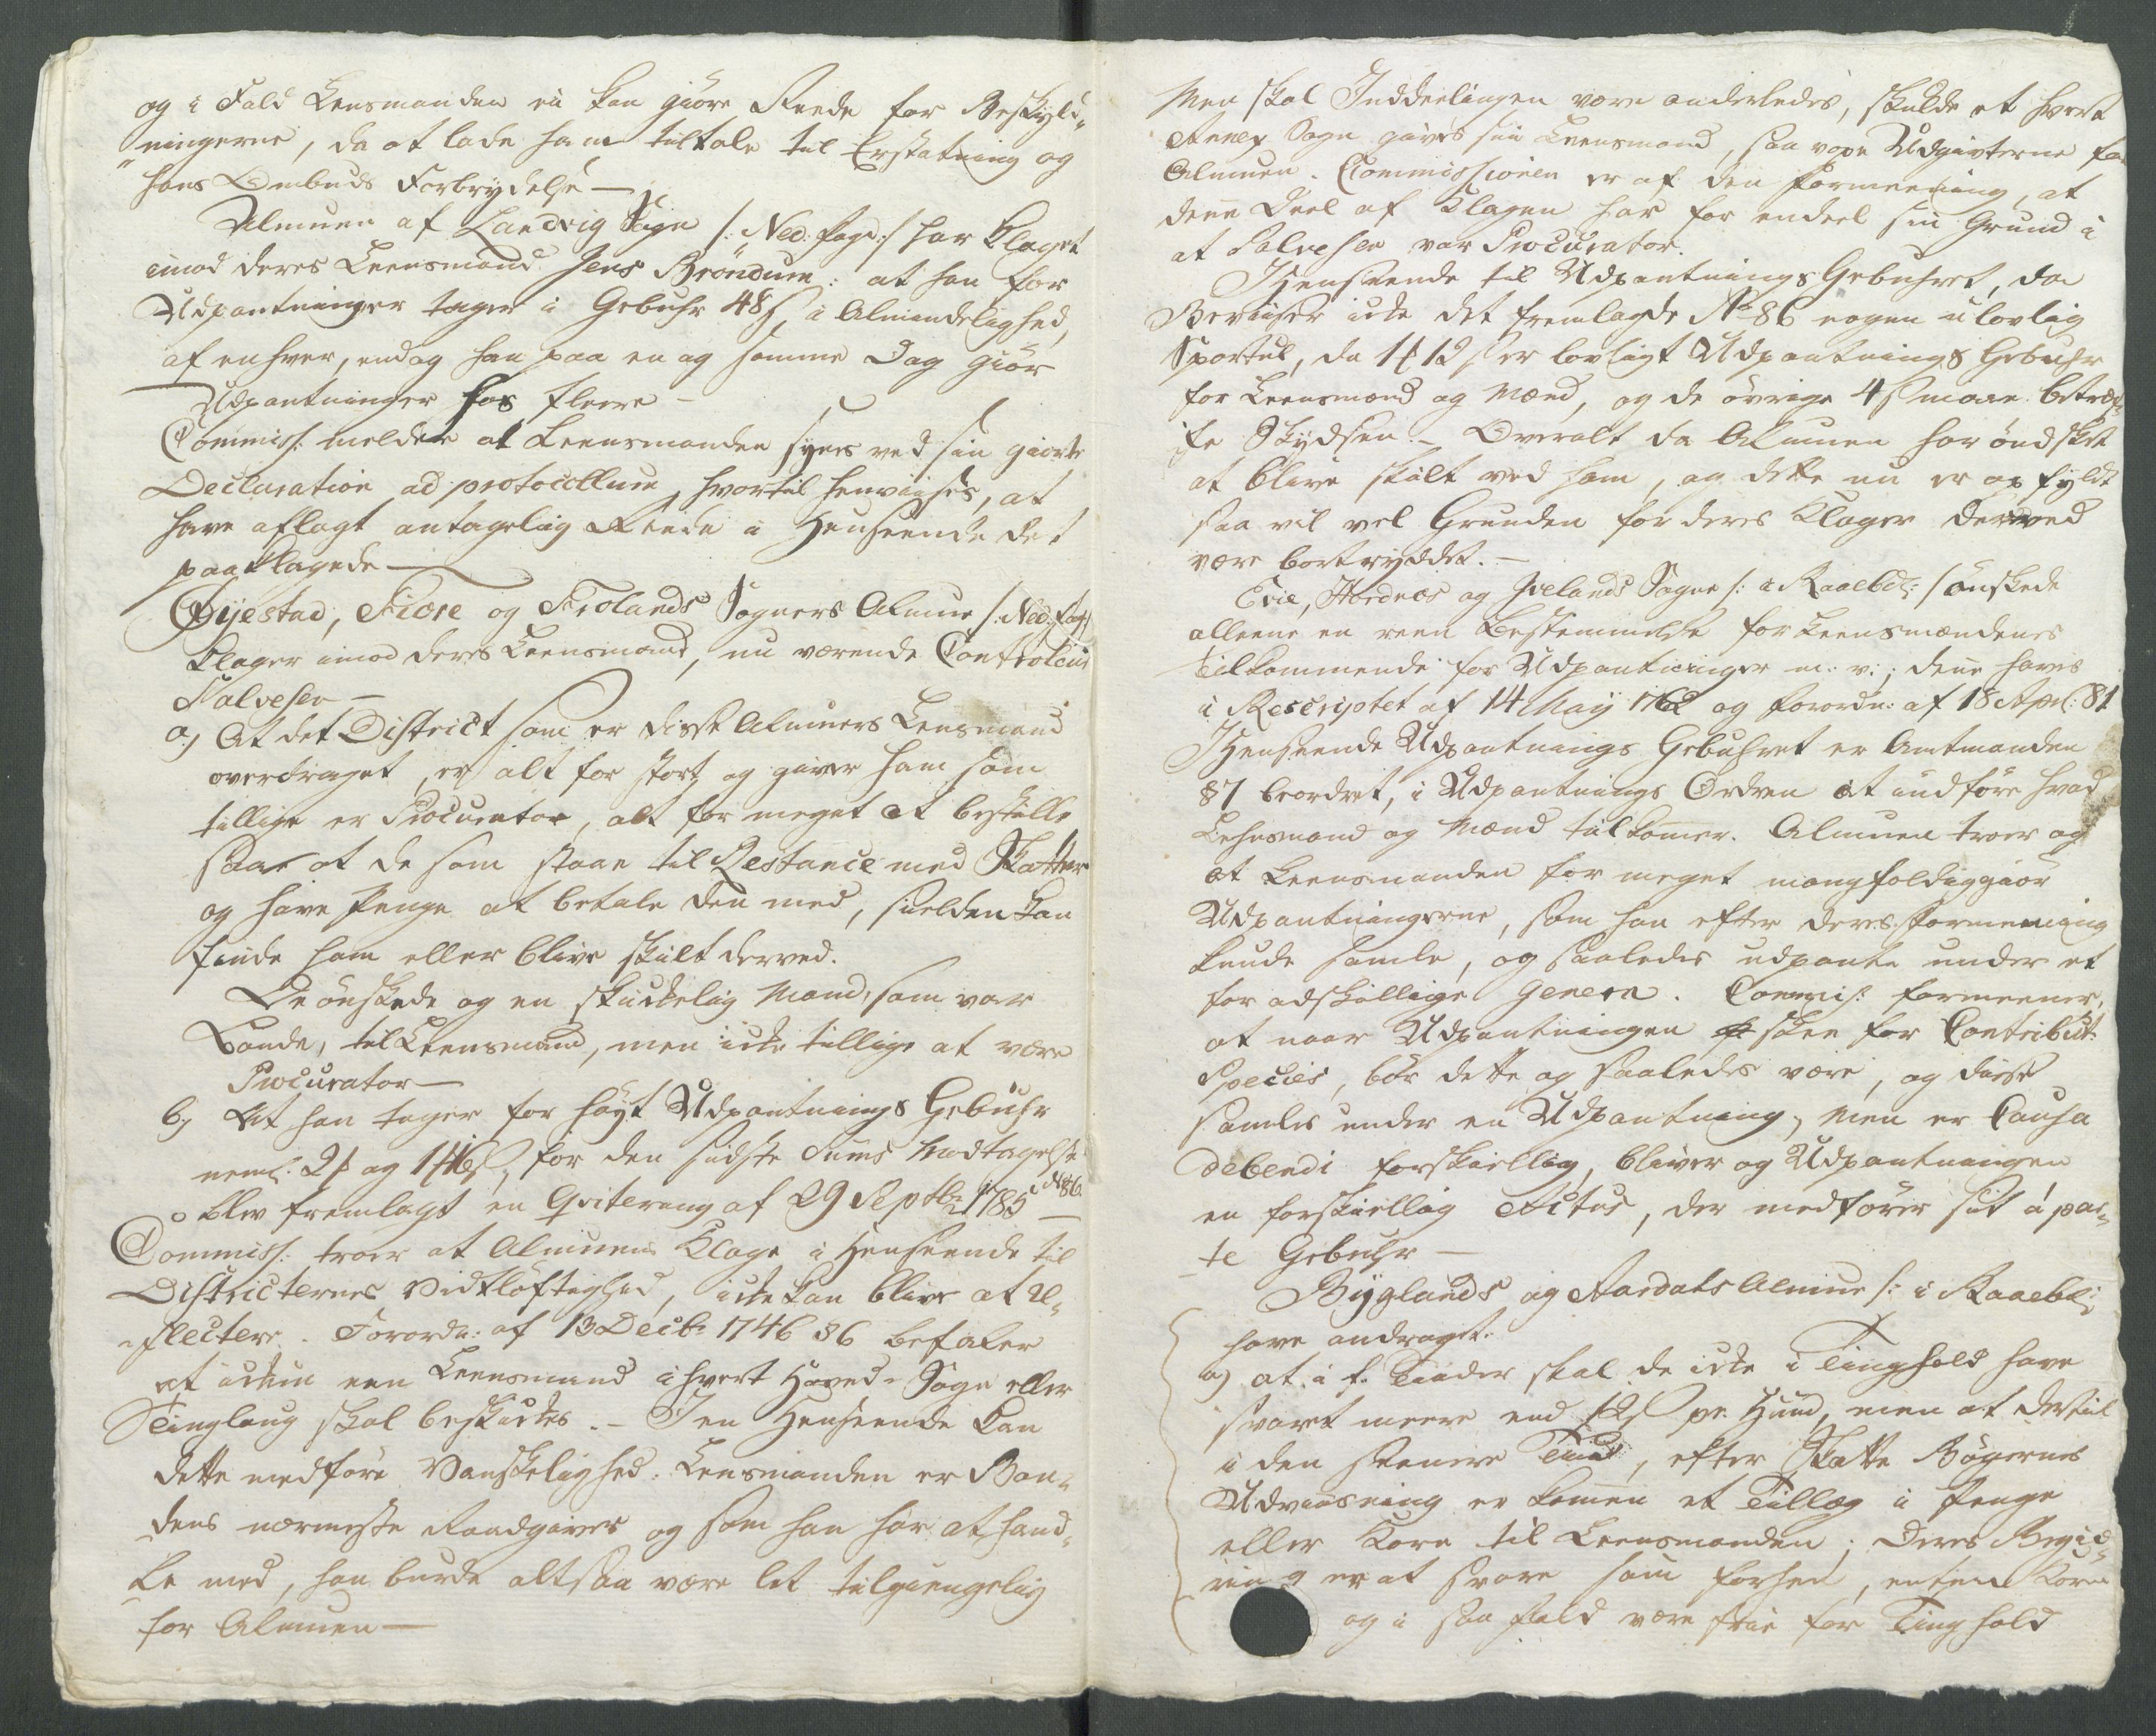 og i Fald Lensmanden ei kan giöre Reede for Beskyld„
„ningerne, da at lade ham tiltale til Erstatning og
hans Ombuds Forbrydelse —
Almuen af Landvig Sogn /: Ned: fogd:/ har klaget
imod deres Leensmand Jens Bröndum: at han for
Udpantninger tager i Gebuhr 48 s, i Almindelighed,
af enhver, endog han paa en og samme Dag giör
Udpantninger hos fleere —
Commiss: melder at Leensmanden synes ved sin giorte
Declaration ad protocollum, hvortil henviises, at
have aflagt antagelig Reede i Henseende det
paaklagede —
Öyestad, Fiære og Frolands Sogners Almue /: Ned: fog:/
klager imod deres Leensmand, nu værende Controleur
Salvesen —
a) At det District som er disse Almuers Lensmand
overdraget, er alt for stort, og giver ham som
tillige er Procurator, alt for meget at bestille
saa at de som staae til Restance med Skatter
og have Penge at betale den med, sielden kan
finde ham eller blive skilt derved.
De önskede og en skikkelig Mand, som var
Bonde, til Leensmand, men ikke tillige at være
Procurator —
b) At han tager for höyt Udpantnings Gebuhr
neml: 2 f og 1 f 16 s, for den sidste Sums Modtagelse
blev fremlagt en Qvitering af 29 Septbr 1785 No 86. —
Commiss: troer at Almuens Klage i Henseende til
Districternes Vidtlöftighed, ikke kan blive at re„
„flectere. Forordn: af 13 Decbr 1746 § 6 befaler
at ikkun een Leensmand i hvert Hoved-Sogn eller
Tinglaug skal beskikkes. — I en Henseende kan
dette medföre Vanskelighed. Leensmanden er Bon„
dens nærmeste Raadgiver og som han har at hand„
le med, han burde altsaa være let tilgiengelig
for Almuen —
Men skal Inddeelingen være anderledes, skulde et hvert
Annex Sogn gives sin Leensmand, saa voxe Udgivterne for
Almuen. Commissionen er af den Formeening, at
denne Deel af Klagen har for endeel sin Grund i
at Salvesen var Procurator.
I Henseende til Udpantnings Gebuhret, da
Beviiser ikke det fremlagde No 86 nogen ulovlig
Sportul, da 1 f 12 s er lovligt Udpantnings Gebuhr
for Leensmand og Mænd, og de övrige 4 s maae betræf„
fe Skydsen. — Overalt da Almuen har öndsket
at blive skilt ved ham, og dette nu er opfyldt
saa vil vel Grunden for deres Klager derved
være bortryddet. —
Evie, Hordnes og Ivelands Sogne /: i Raaebd: / önskede
alleene en reen Bestemmelse for Leensmændenes
tilkommende for Udpantninger m: v:; denne haves
i Rescriptet af 14 May 1762 og Forordn: af 18 Apr: 81
I Henseende Udpantnings Gebuhret er Amtmanden
87 beordret, i Udpantnings Ordren at indföre hvad
Lehnsmand og Mænd tilkommer. Almuen troer og
at Leensmanden for meget mangfoldiggiör
Udpantningerne, som han efter deres Formeening
kunde samle, og saaledes udpante under et
for adskillige Genera. Commis: formeener,
at naar Udpantningen skee for Contribut:
Species, bör dette og saaledes være, og disse
samles under en Udpantning, men er Causa
debendi forskiellig, bliver og Udpantningen
en forskiellig Actus, der medförer sit à par„
„te Gebuhr —
Byglands og Aardals Almue /: i Raaebd:
have andraget.
a) at i f. Tiider skal de ikke i Tinghold have
svaret meere end 12 s pr. Hund, men at dertil
i den seenere Tiid, efter Skatte Bögernes
Udviisning er kommen et Tillæg i Penge
eller Korn til Leensmanden; Deres Begiæ„
ring er at svare som forhen, enten Korn
og i saa fald være frie for Tinghold